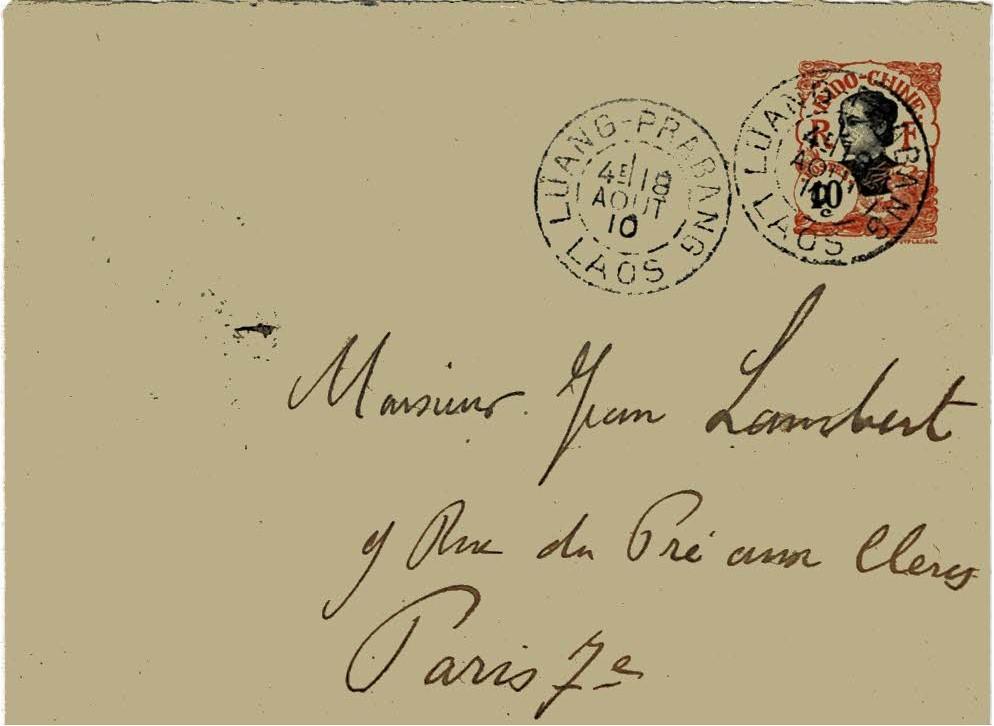 INDO-CHINE
R F
10
c
LUANG-PRABANG
4E 18
AOUT
10
LAOS
LUANG-PRABANG
4E 18
AOUT
10
LAOS
Monsieur Jean Lambert
9 Rue du Pré aux Clercs
Paris 7e